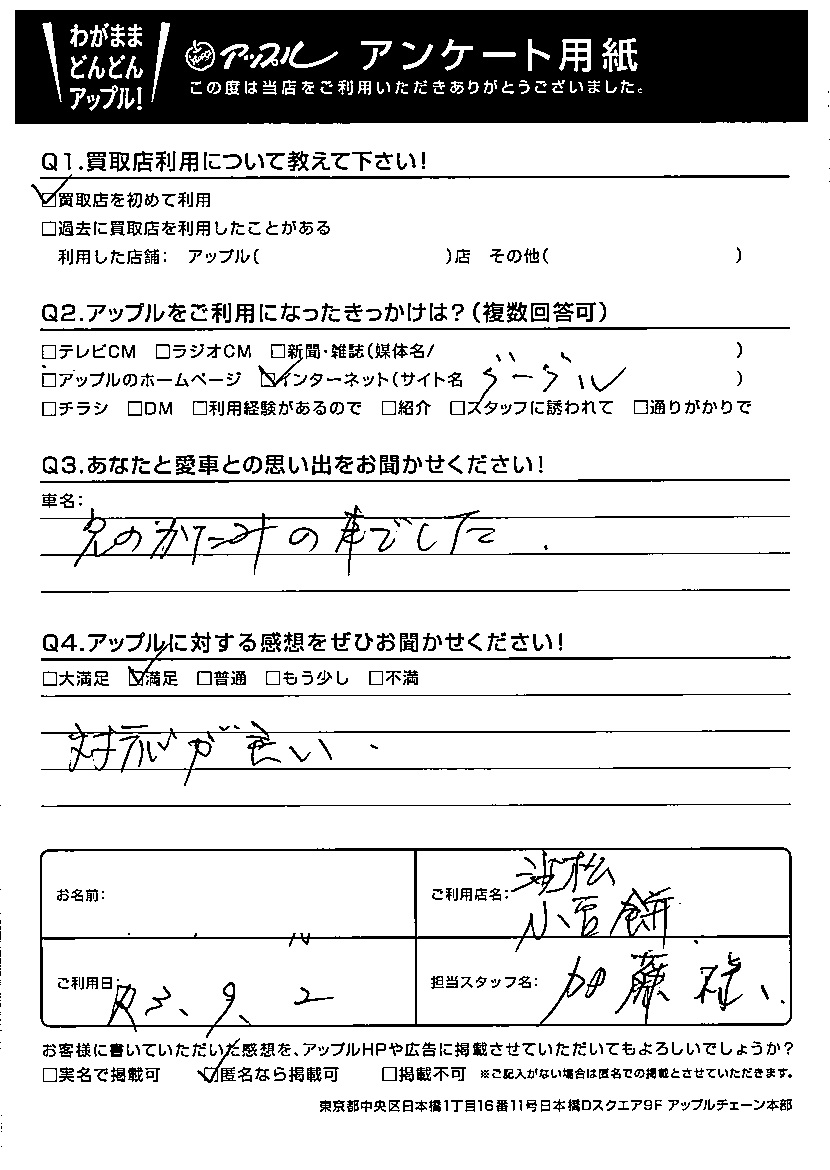 わがまま
どんどん
アップル!
アップル アンケート用紙
この度は当店をご利用いただきありがとうございました。
Q1.買取店利用について教えて下さい!
☑買取店を初めて利用
□過去に買取店を利用したことがある
利用した店舗: アップル( )店 その他( )
Q2.アップルをご利用になったきっかけは?(複数回答可)
□テレビCM □ラジオCM □新聞・雑誌(媒体名/ )
□アップルのホームページ ☑インターネット(サイト名 グーグル )
□チラシ □DM □利用経験があるので □紹介 □スタッフに誘われて □通りがかりで
Q3.あなたと愛車との思い出をお聞かせください!
車名:
兄のかたみの車でした.
Q4.アップルに対する感想をぜひお聞かせください!
□大満足 ☑満足 □普通 □もう少し □不満
対応が良い.
お名前:
ご利用店名: 浜松
小豆餅
ご利用日: R3、9、2
担当スタッフ名: 加藤様、
お客様に書いていただいた感想を、アップルHPや広告に掲載させていただいてもよろしいでしょうか?
□実名で掲載可 ☑匿名なら掲載可 □掲載不可 ※ご記入がない場合は匿名での掲載とさせていただきます。
東京都中央区日本橋1丁目16番11号日本橋Dスクエア9F アップルチェーン本部